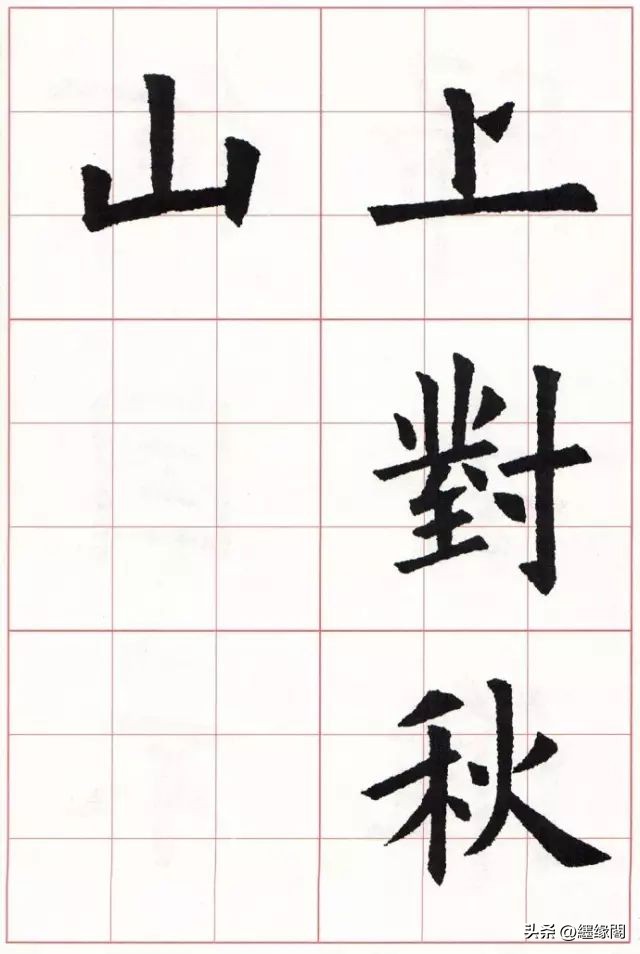 上對秋
山
头条 @纒缘閣